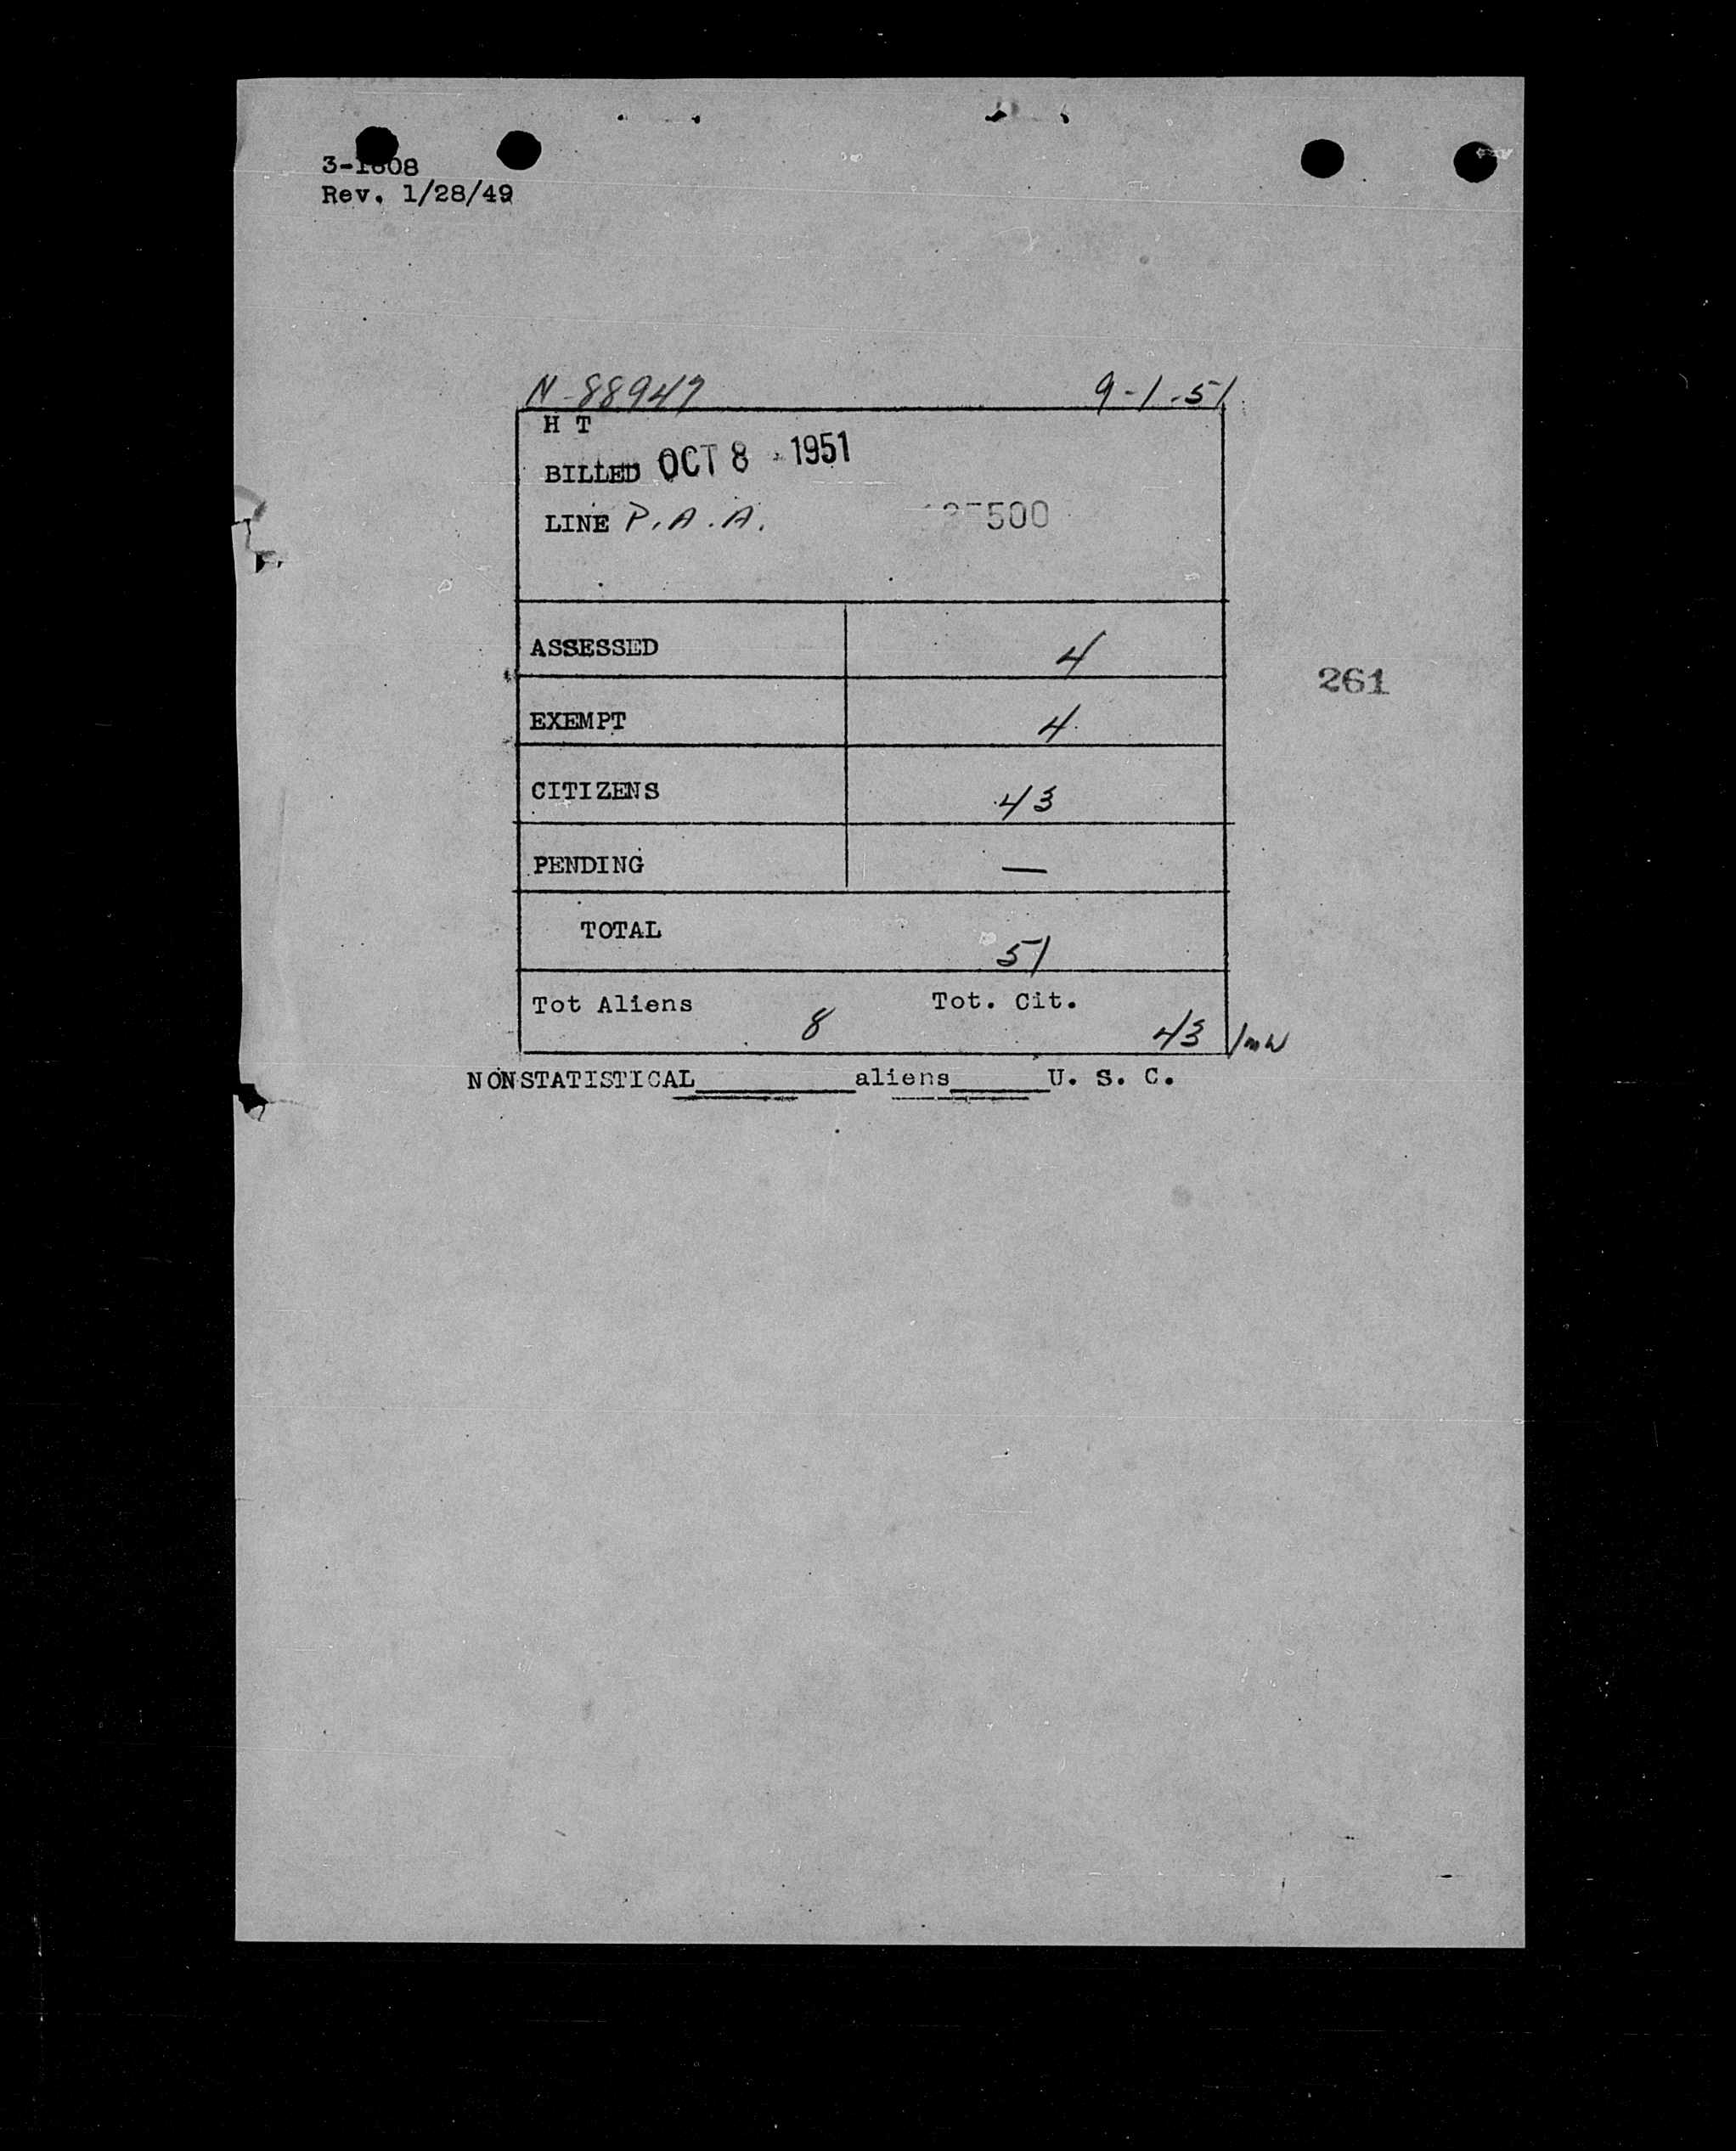 Rev. 1/28/49
N-88947 9-1-51
H T
BILLED OCT 8 1951
LINE P.A.A. 500
ASSESSED 4
261
EXEMPT 4
CITIZENS 43
PENDING —
TOTAL 51
Tot Aliens 8 Tot. Cit. 43
NONSTATISTICAL______aliens______U. S. C.